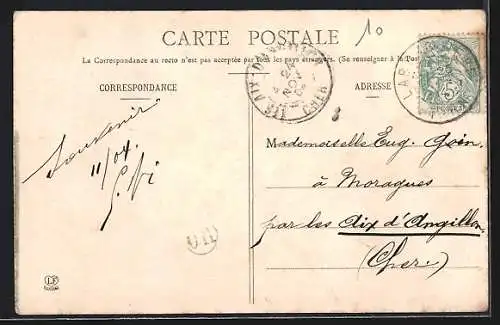 CARTE POSTALE
10
La Correspondance au recto n'est pas acceptée par tous les pays étrangers. (Se renseigner à la Poste
CORRESPONDANCE
ADRESSE
LES AIX D'ANGILLON
CHER
24
NOV
5c
Souvenir
11/04.
Mademoiselle Eug.
à Moragues
par les Aix d'Angillon
(Cher)
OR